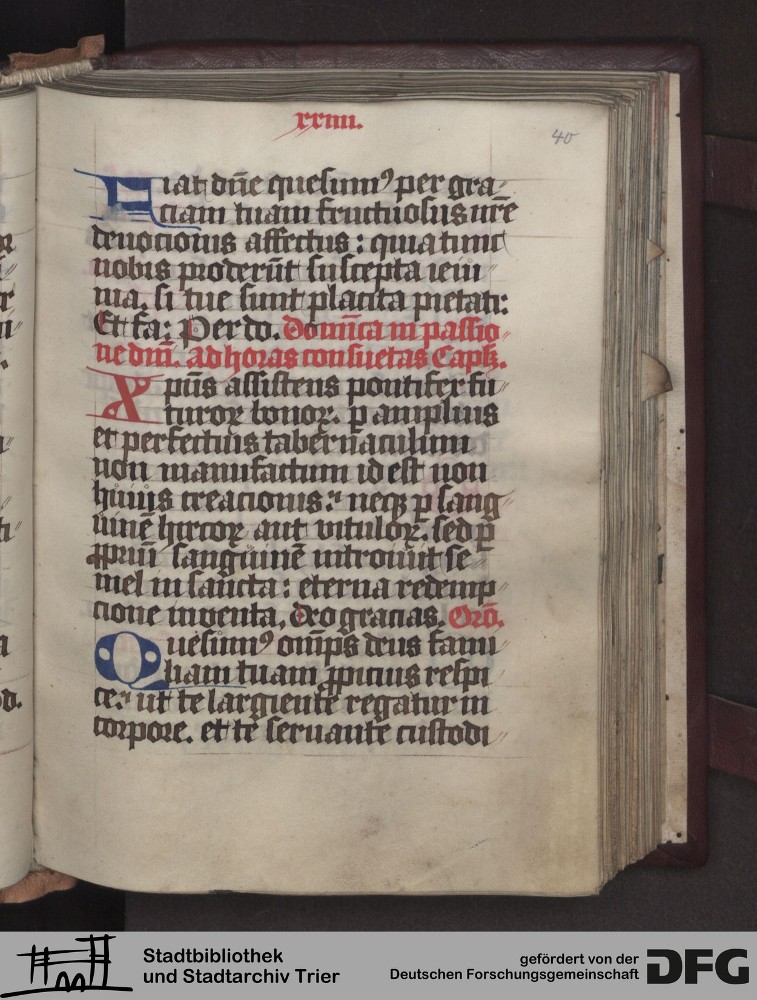 xxiiii.
40
Fiat dn̄e quesumꝰ per gra
ciam tuam fructuosus nr̄e
deuocionis affectus : quia tunc
nobis proderūt suscepta ieiu
nia. si tue sunt placita pietati:
Et fa; Per do. Domīca in passio
ne dnī. ad horas consuetas Capłm.
Xpūs assistens pontifex fu
turoꝝ bonoꝝ. ꝑ amplius
et perfectius tabernaculum
non manufactum id est non
huius creacionis : neqꝫ ꝑ sang
uinē hircoꝝ aut vituloꝝ. sed ꝑ
ꝓpriū sanguinē introiuit se
mel in sancta : eterna redemp
cione inuenta. deo gracias. Orō.
Quesumꝰ om̄ps deus fami
liam tuam ꝓpicius respi
ce : ut te largiente regatur in
corpore. et te seruante custodi
Stadtbibliothek
und Stadtarchiv Trier
gefördert von der
Deutschen Forschungsgemeinschaft
DFG